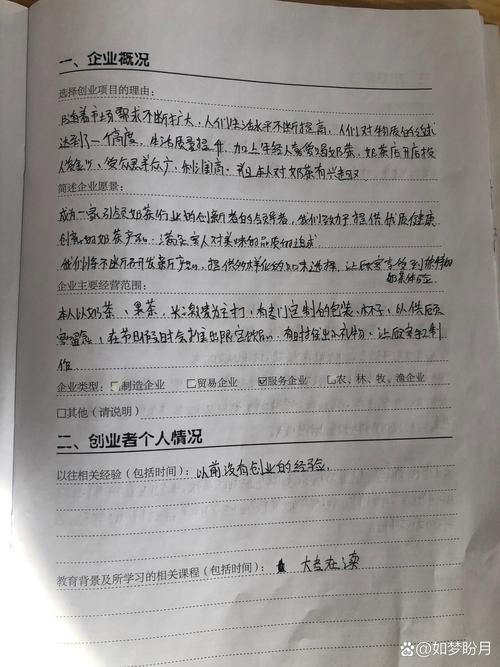 一、企业概况
选择创业项目的理由：
随着市场需求不断扩大，人们生活水平不断提高，人们对物质的追求
达到了一个高度，生活质量提升，加上年轻人喜爱喝奶茶，奶茶店开店投
资金少，受众果多广，利润高，我本人对奶茶有兴趣
简述企业愿景：
成为一家引领奶茶行业的创新者的领导者，我们致力于提供优质健康
创新的奶茶产品，满足客人对美味的品质的追求
我们将不断研发新产品，提供多样化的口味选择，让顾客享受到独特的
奶茶体验。
企业主要经营范围：
本人以奶茶、果茶、为主打，有专门定制的包装、杯子，以供顾客
在节日假日时会推出限定饮品，有时推出小礼物，让顾客
作。
企业类型：□制造企业 □贸易企业 ☑服务企业 □农、林、牧、渔企业
□其他（请说明）
二、创业者个人情况
以往相关经验（包括时间）：以前没有创业的经验。
教育背景及所学习的相关课程（包括时间）： 大专在读
@如梦盼月